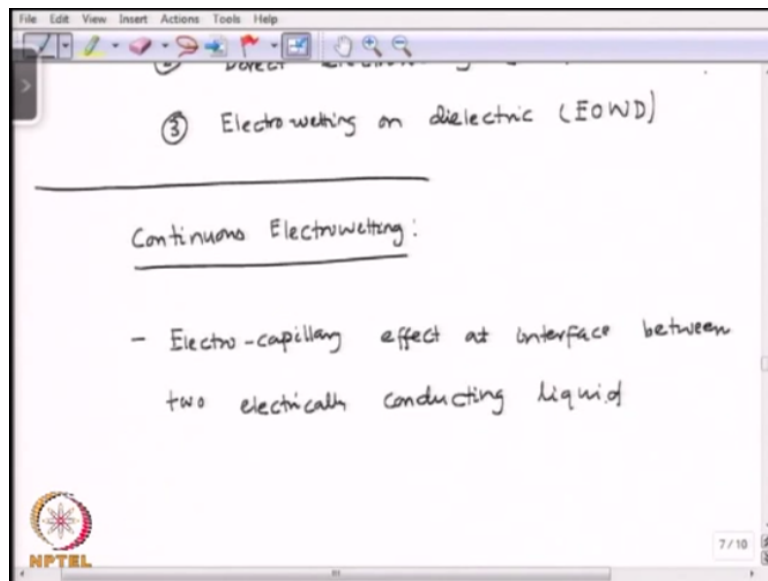 File Edit View Insert Actions Tools Help
③ Electrowetting on dielectric (EOWD)
Continuous Electrowetting:
- Electro-capillary effect at interface between
two electrically conducting liquid
NPTEL
7/10